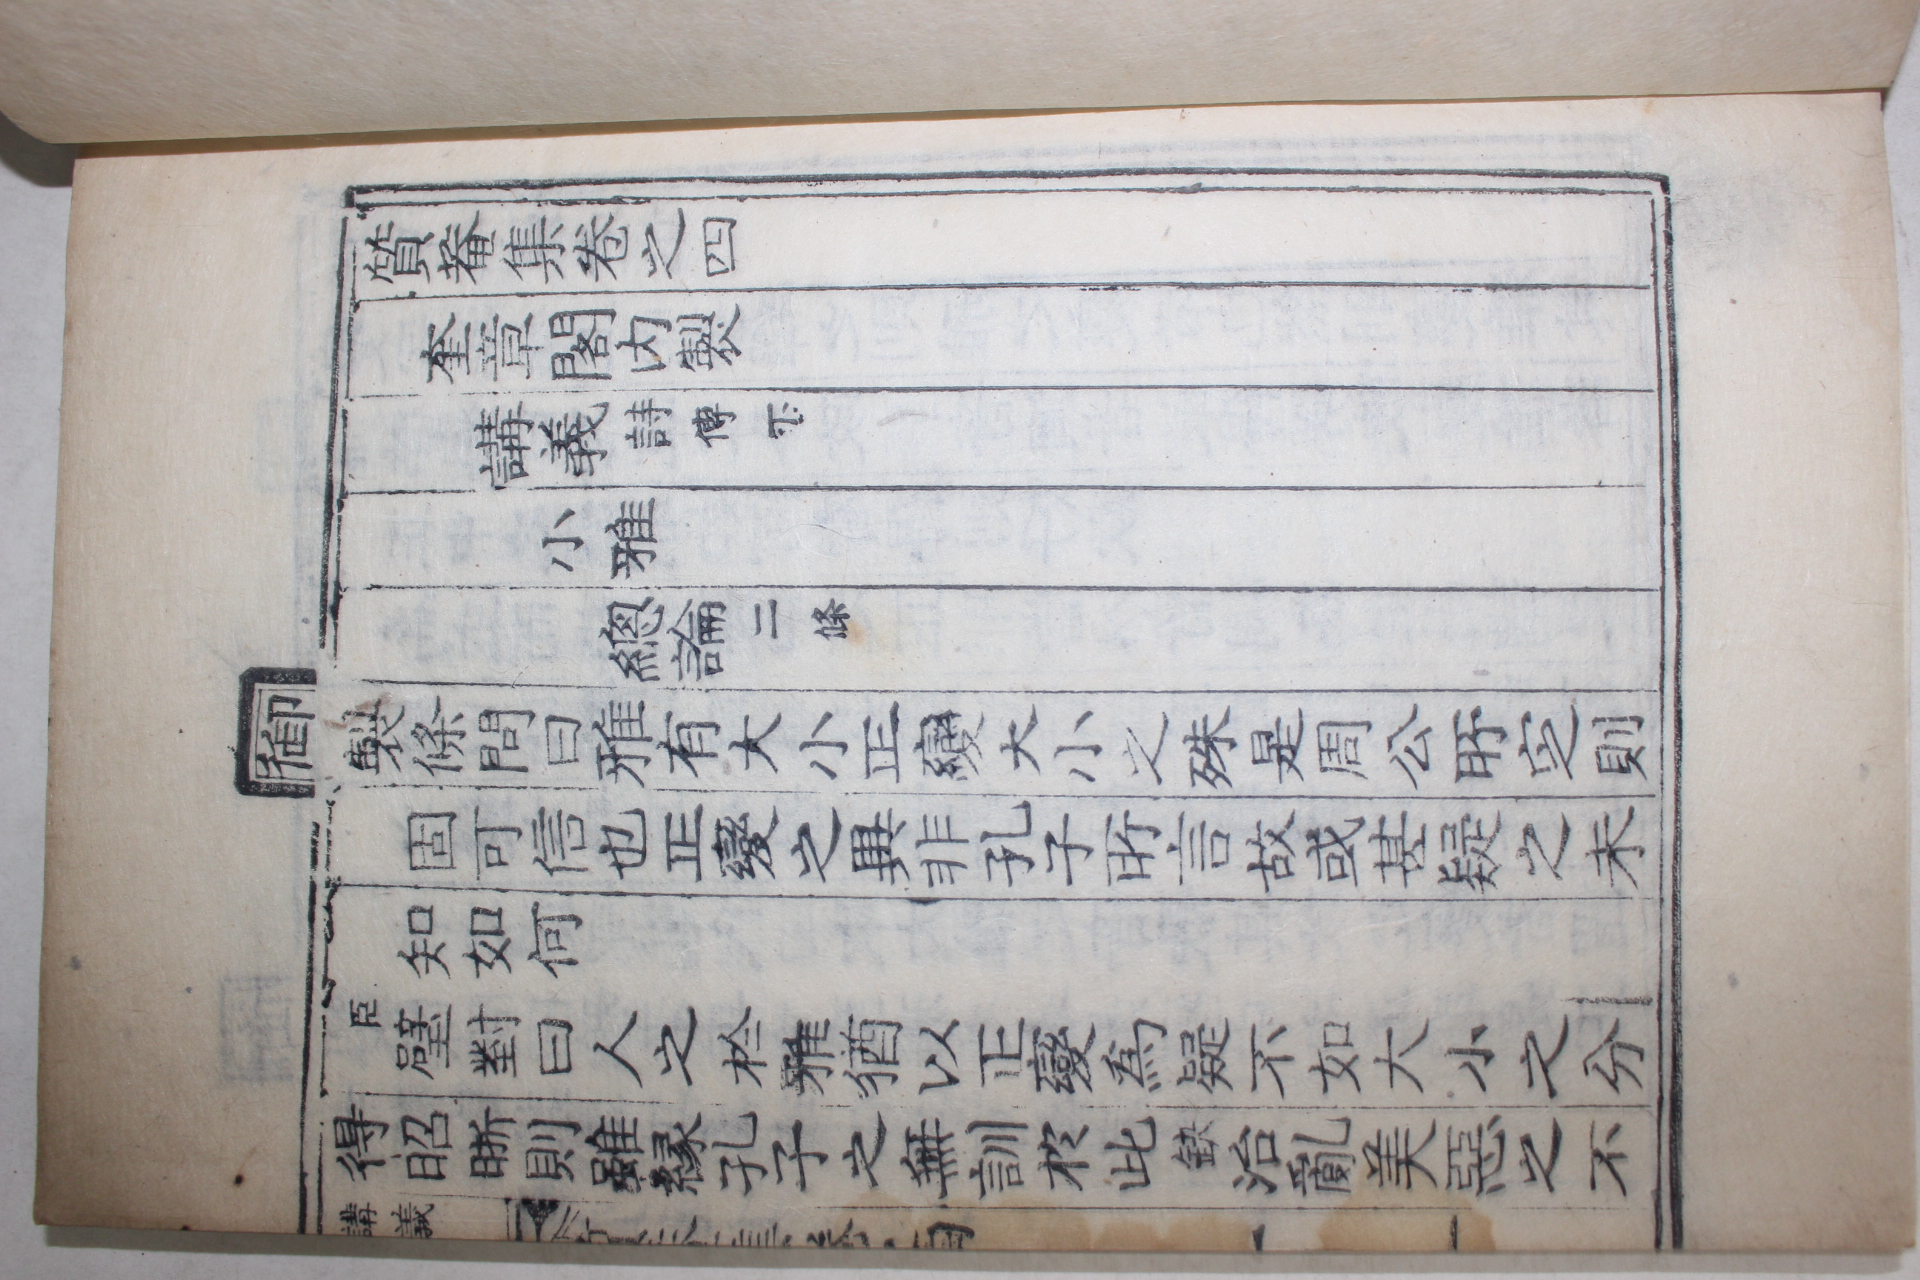 質菴集卷之四
奎章閣內製
講義詩傳下
小雅
總論二條
御製條問曰雅有大小正變大小之殊是周公所定則
固可信也正變之異非孔子所言故或甚疑之未
知如何
臣璧對曰人之於雅猶以正變爲疑不如大小之分
得昭晰則雖緣孔子之無訓於此 治亂美惡之不
講義